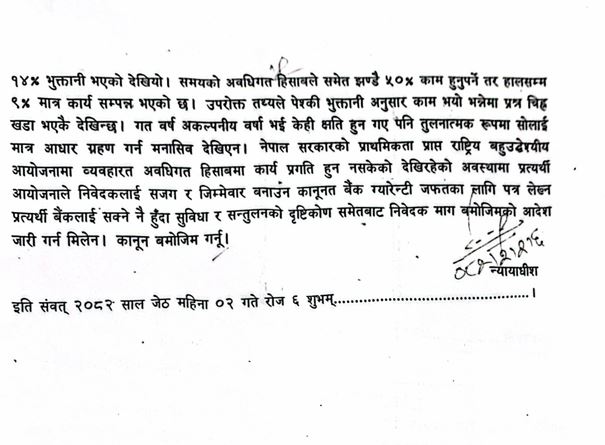 १४% भुक्तानी भएको देखियो। समयको अवधिगत हिसाबले समेत झण्डै ५०% काम हुनुपर्ने तर हालसम्म
९% मात्र कार्य सम्पन्न भएको छ। उपरोक्त तथ्यले पेश्की भुक्तानी अनुसार काम भयो भन्नेमा प्रश्न चिह्न
खडा भएकै देखिन्छ। गत वर्ष अकल्पनीय वर्षा भई केही क्षति हुन गए पनि तुलनात्मक रूपमा सोलाई
मात्र आधार ग्रहण गर्न मनासिव देखिएन। नेपाल सरकारको प्राथमिकता प्राप्त राष्ट्रिय बहुउद्देश्यीय
आयोजनामा व्यवहारत अवधिगत हिसाबमा कार्य प्रगति हुन नसकेको देखिरहेको अवस्थामा प्रत्यर्थी
आयोजनाले निवेदकलाई सजग र जिम्मेवार बनाउन कानूनत बैंक ग्यारेन्टी जफतका लागि पत्र लेख्न
प्रत्यर्थी बैंकलाई सक्ने नै हुँदा सुविधा र सन्तुलनको दृष्टिकोण समेतबाट निवेदक माग बमोजिमको आदेश
जारी गर्न मिलेन। कानून बमोजिम गर्नू।
न्यायाधीश
इति संवत् २०८२ साल जेठ महिना ०२ गते रोज ६ शुभम्.................................................।